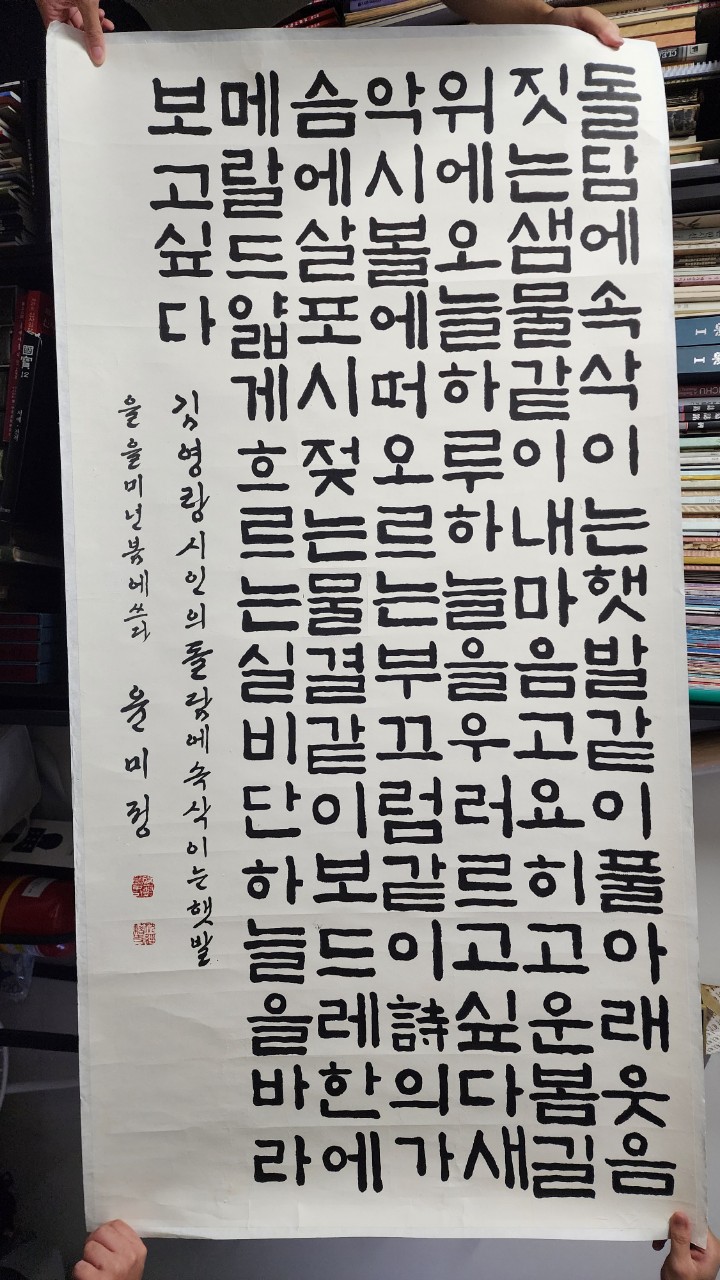 돌담에속삭이는햇발같이풀아래웃음
짓는샘물같이내마음고요히고운봄길
위에오늘하루하늘을우러르고싶다새
악시볼에떠오르는부끄럼같이詩의가
슴에살포시젖는물결같이보드레한에
메랄드얇게흐르는실비단하늘을바라
보고싶다
김영랑시인의돌담에속삭이는햇발
을을미년봄에쓰다 윤미정